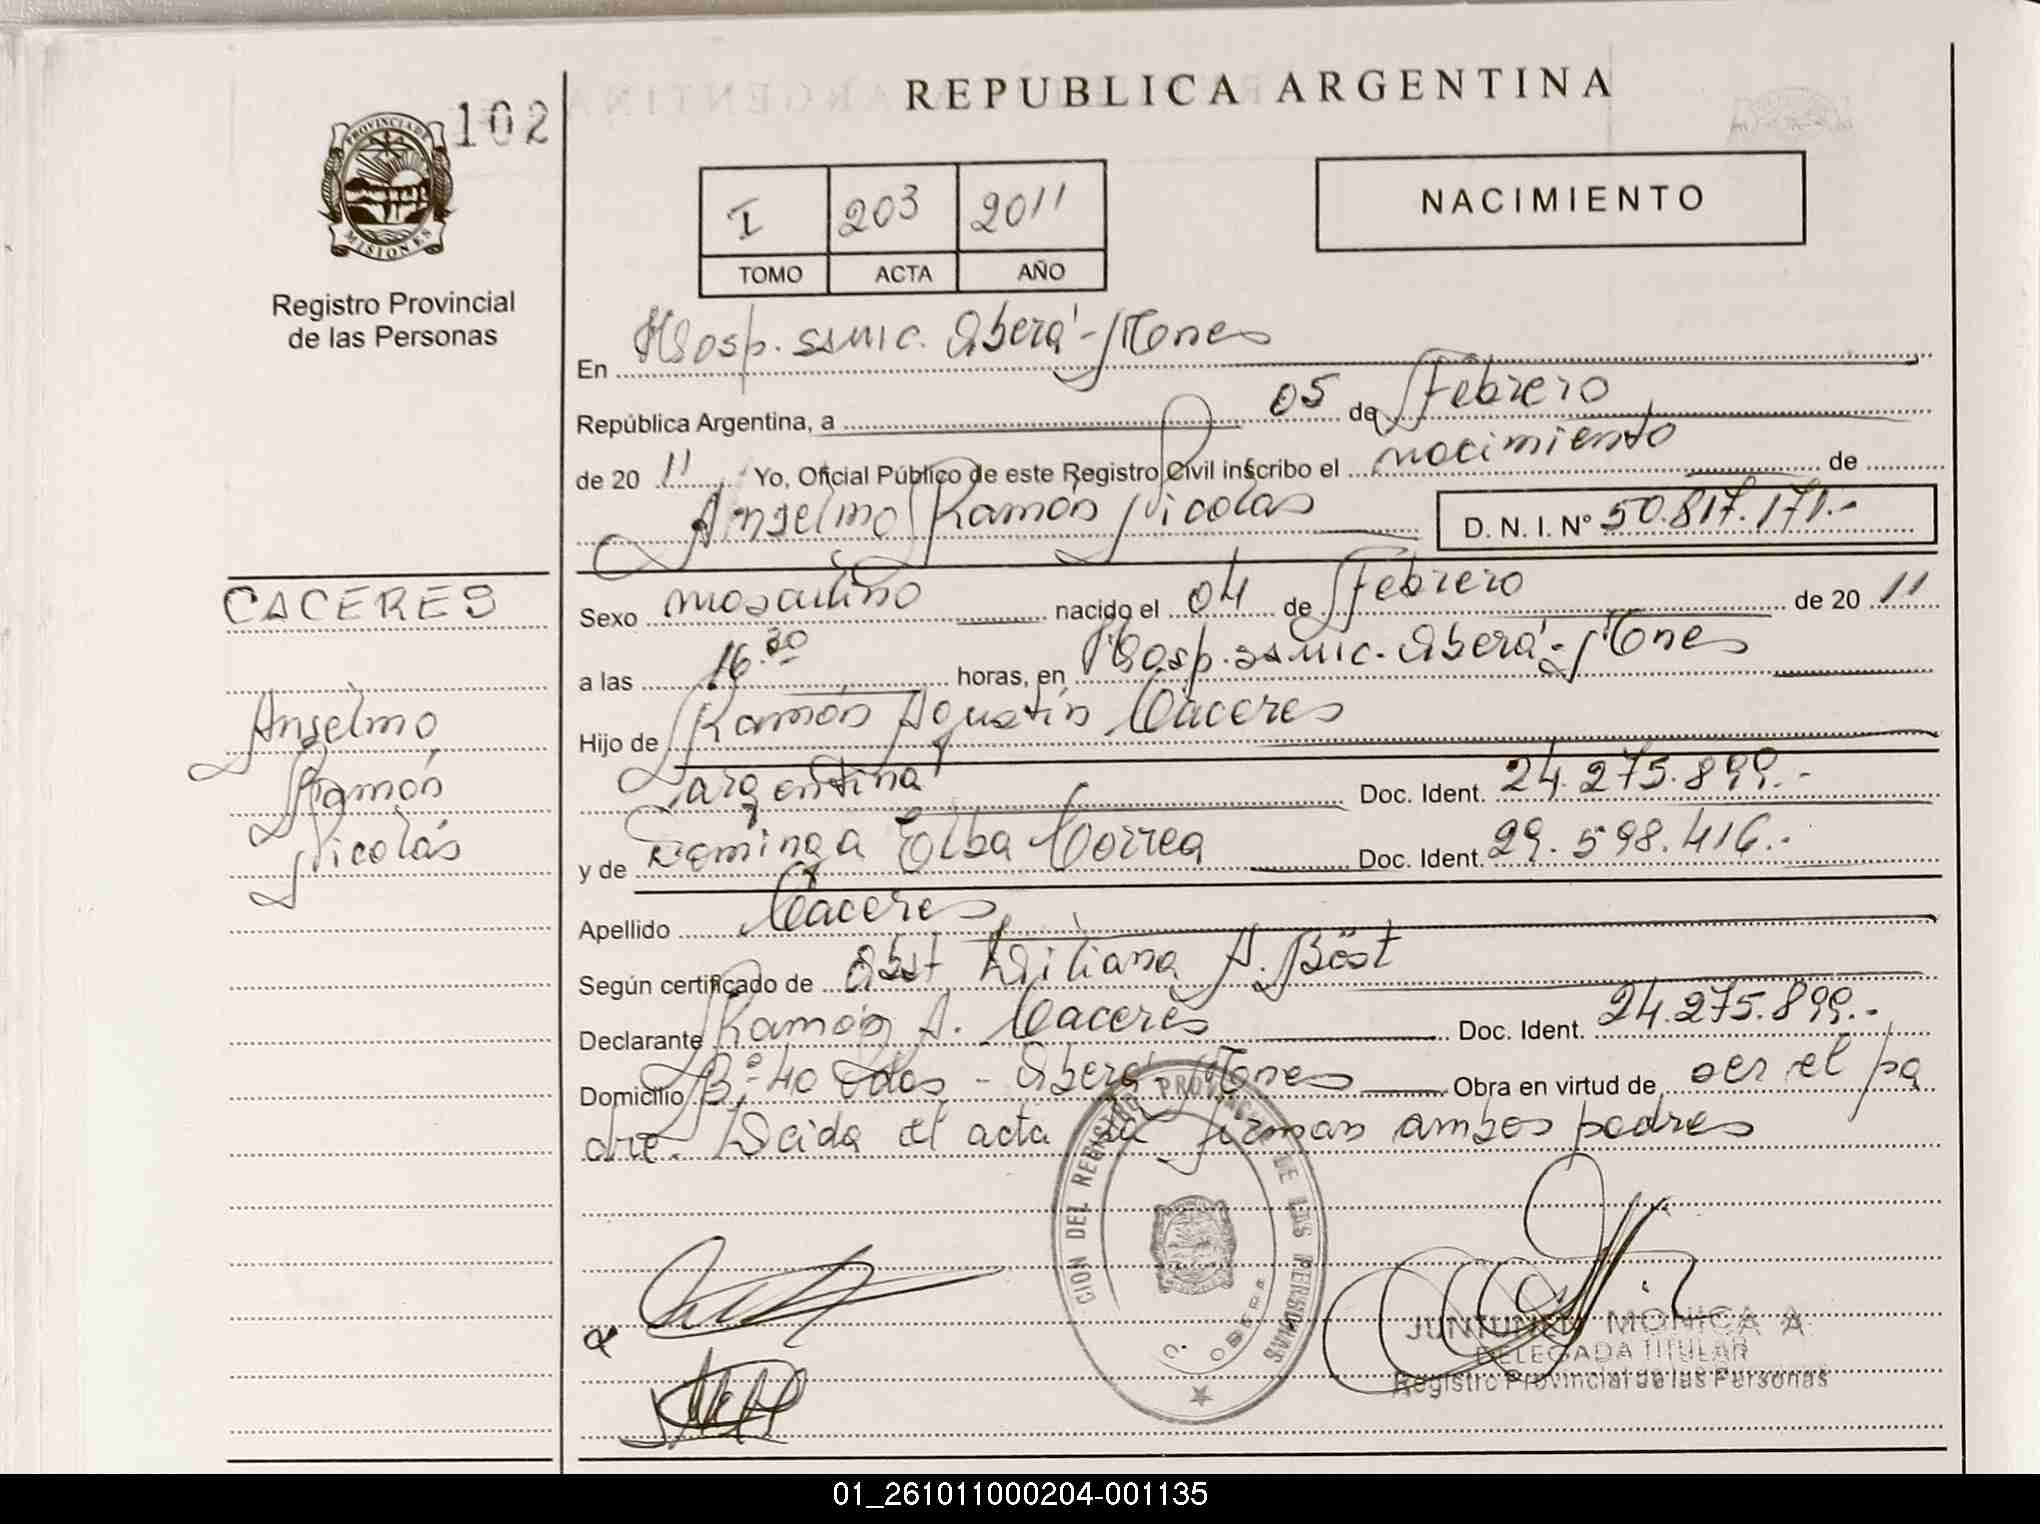 REPUBLICA ARGENTINA
102
PROVINCIA DE
MISIONES
Registro Provincial
de las Personas
I 203 2011
TOMO ACTA AÑO
NACIMIENTO
En Hosp. SSMIC. Oberá - Mones
República Argentina, a 05 de Febrero
de 20 11 Yo, Oficial Público de este Registro Civil inscribo el nacimiento de
Anselmo Ramón Nicolás D. N. I. Nº 50.817.171.-
CACERES
Sexo masculino nacido el 04 de Febrero de 20 11
a las 16.30 horas, en Hosp. SSMIC. Oberá - Mones
Anselmo
Ramón
Nicolás
Hijo de Ramón Agustín Cáceres
argentina Doc. Ident. 24.275.899.-
y de Dominga Elba Correa Doc. Ident. 29.598.416.-
Apellido Cáceres
Según certificado de Obst Liliana A. Böst
Declarante Ramón A. Caceres Doc. Ident. 24.275.899.-
Domicilio Bº 40 Oberá - Mones Obra en virtud de ser el pa
dre. Leida el acta la firman ambos padres
CION DEL REGISTRO PROVINCIAL DE LAS PERSONAS
OBERA
JUNTUNEN MONICA A
DELEGADA TITULAR
Registro Provincial de las Personas
01_261011000204-001135